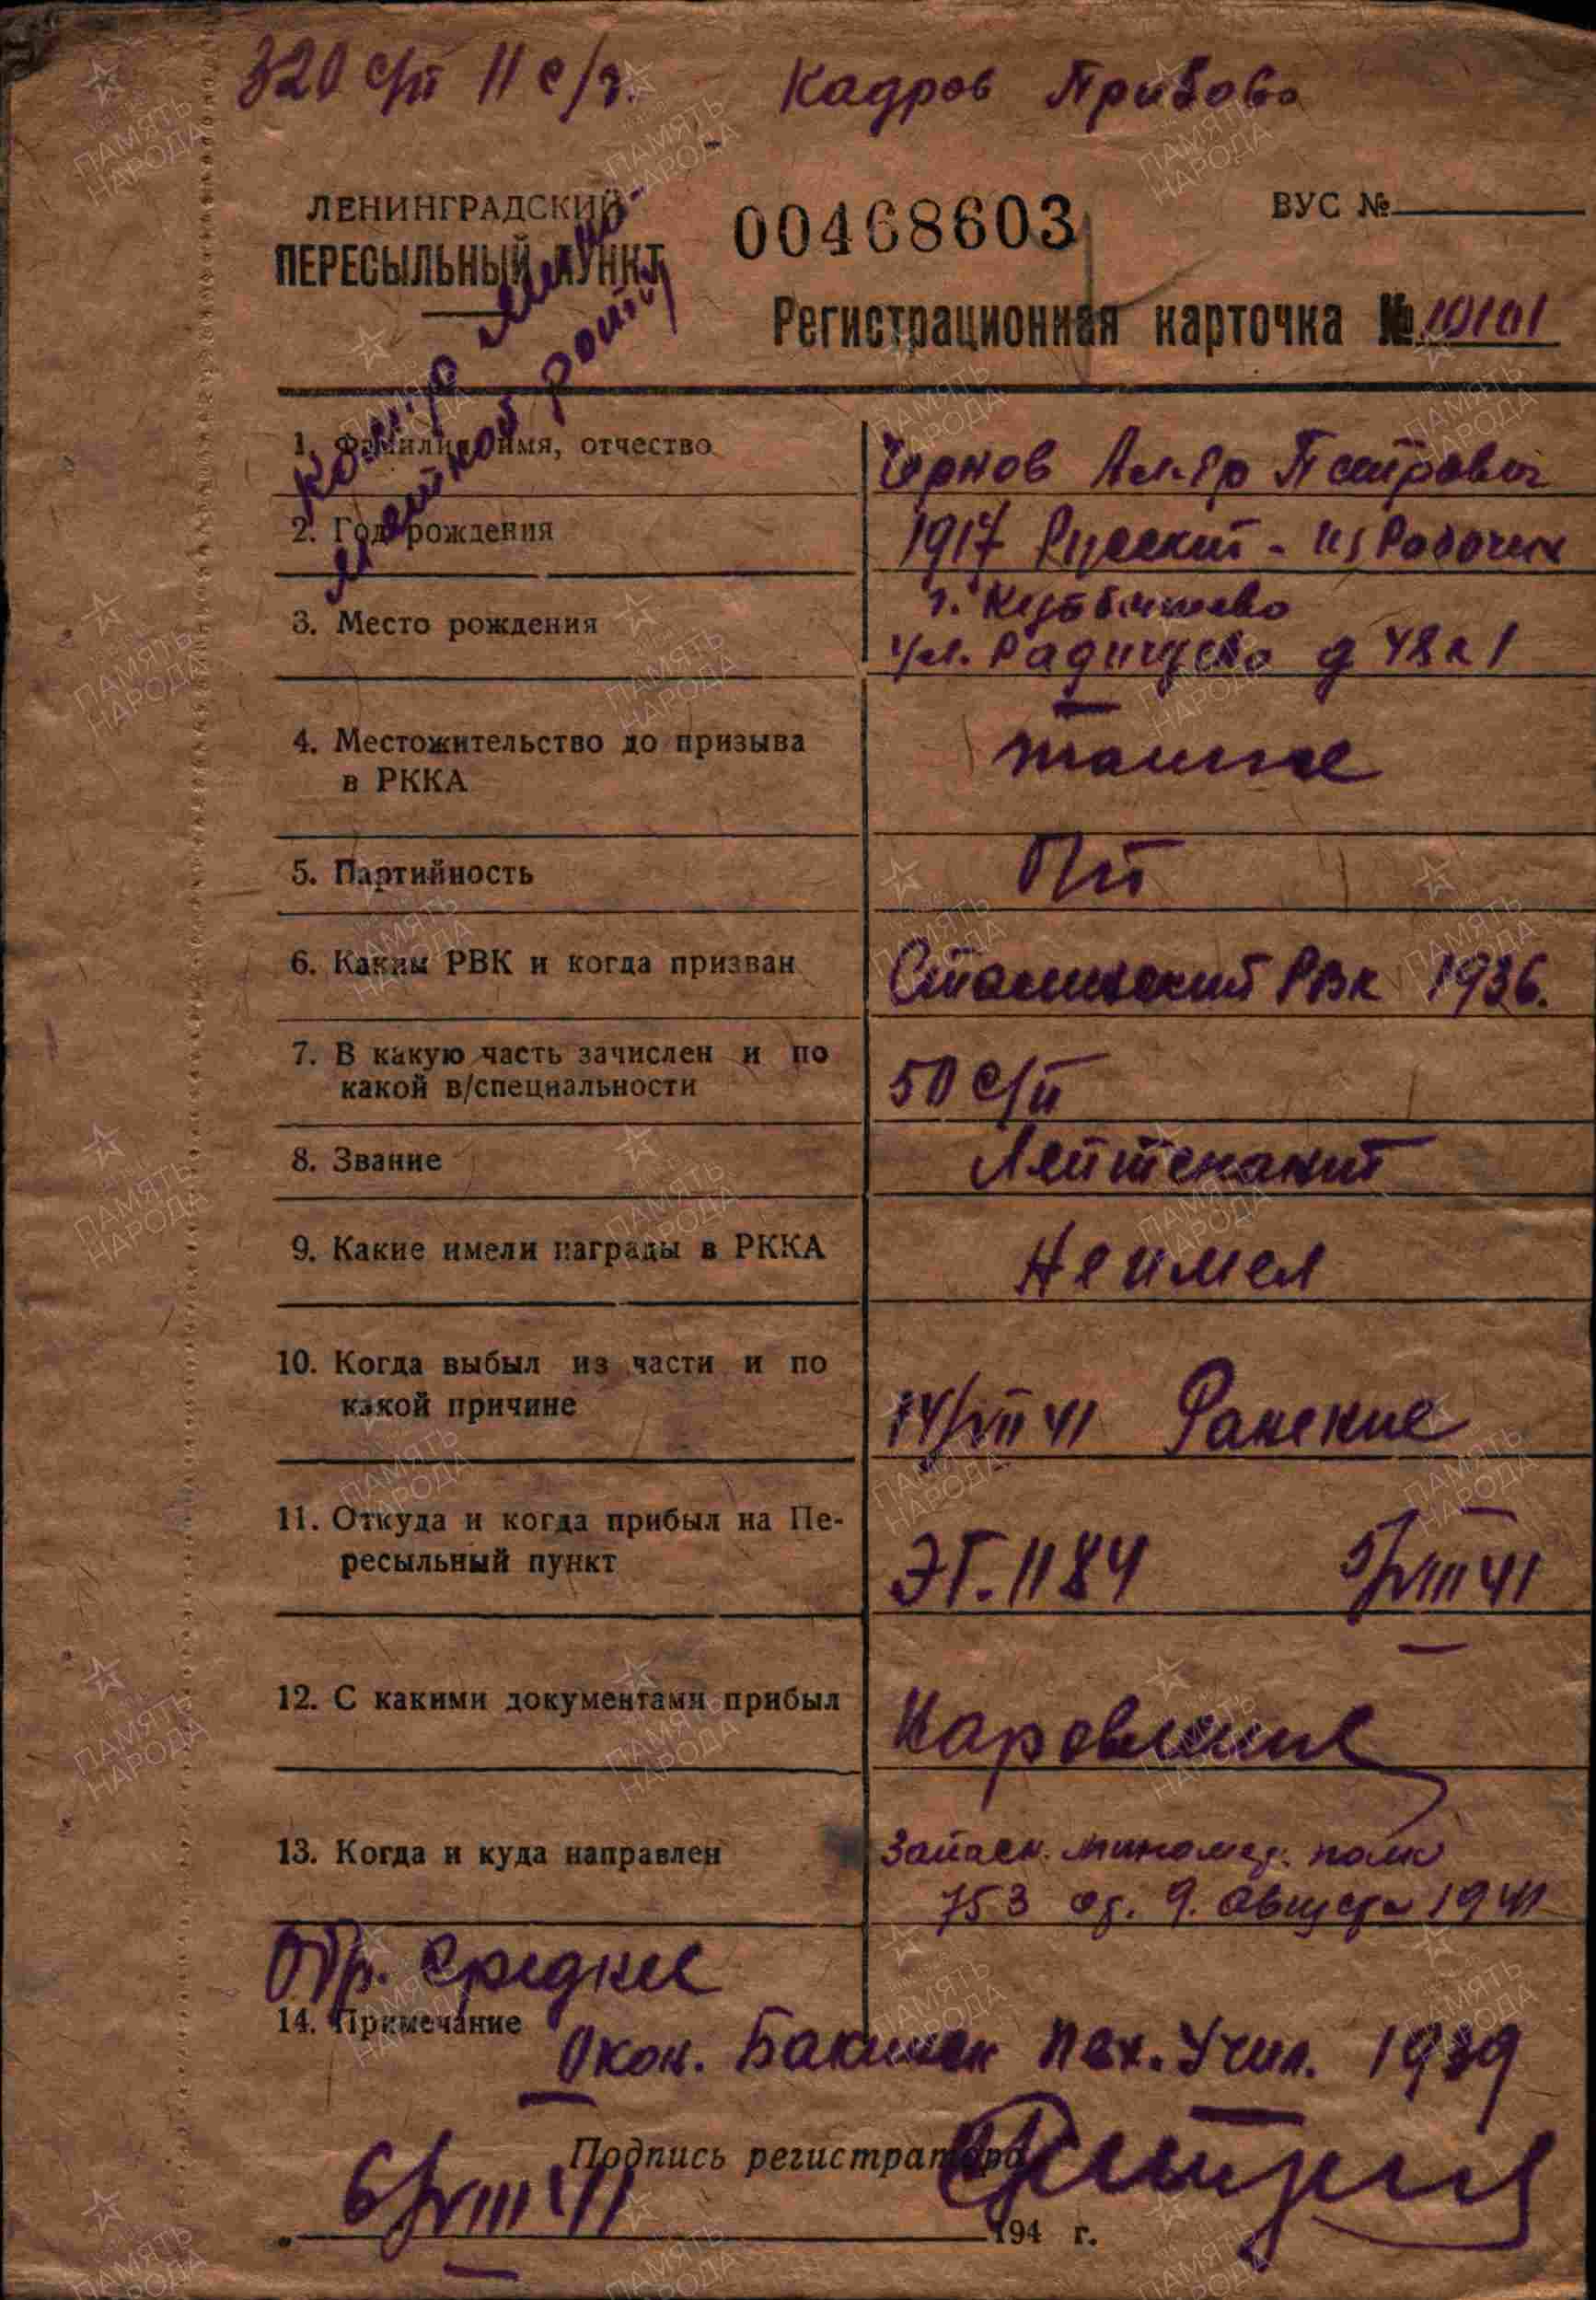 320 с/п 11 с/д. Кадров Прибово
ЛЕНИНГРАДСКИЙ
ПЕРЕСЫЛЬНЫЙ ПУНКТ
00468603
ВУС №
Регистрационная карточка № 10101
ком-р мино-
метной роты
1. Фамилия, имя, отчество
Чернов Ал-др Петрович
2. Год рождения
1917 Русский - из Рабочих
3. Место рождения
г. Куйбышево
ул. д 48 к 1
4. Местожительство до призыва
в РККА
тоже
5. Партийность
6. Каким РВК и когда призван
Сталинский РВК 1936.
7. В какую часть зачислен и по
какой в/специальности
50 с/п
8. Звание
Лейтенант
9. Какие имели награды в РККА
Не имел
10. Когда выбыл из части и по
какой причине
14/VII 41 Ранение
11. Откуда и когда прибыл на Пе-
ресыльный пункт
ЭГ. 1184 5/VIII 41
12. С какими документами прибыл
13. Когда и куда направлен
Запасн. миномет. полк
753 от. 9. Августа 1941
Обр. среднее
14. Примечание
Окон. Бакинск Пех. Учил. 1939
Подпись регистратора
6/VIII 41
194 г.
ПАМЯТЬ
НАРОДА